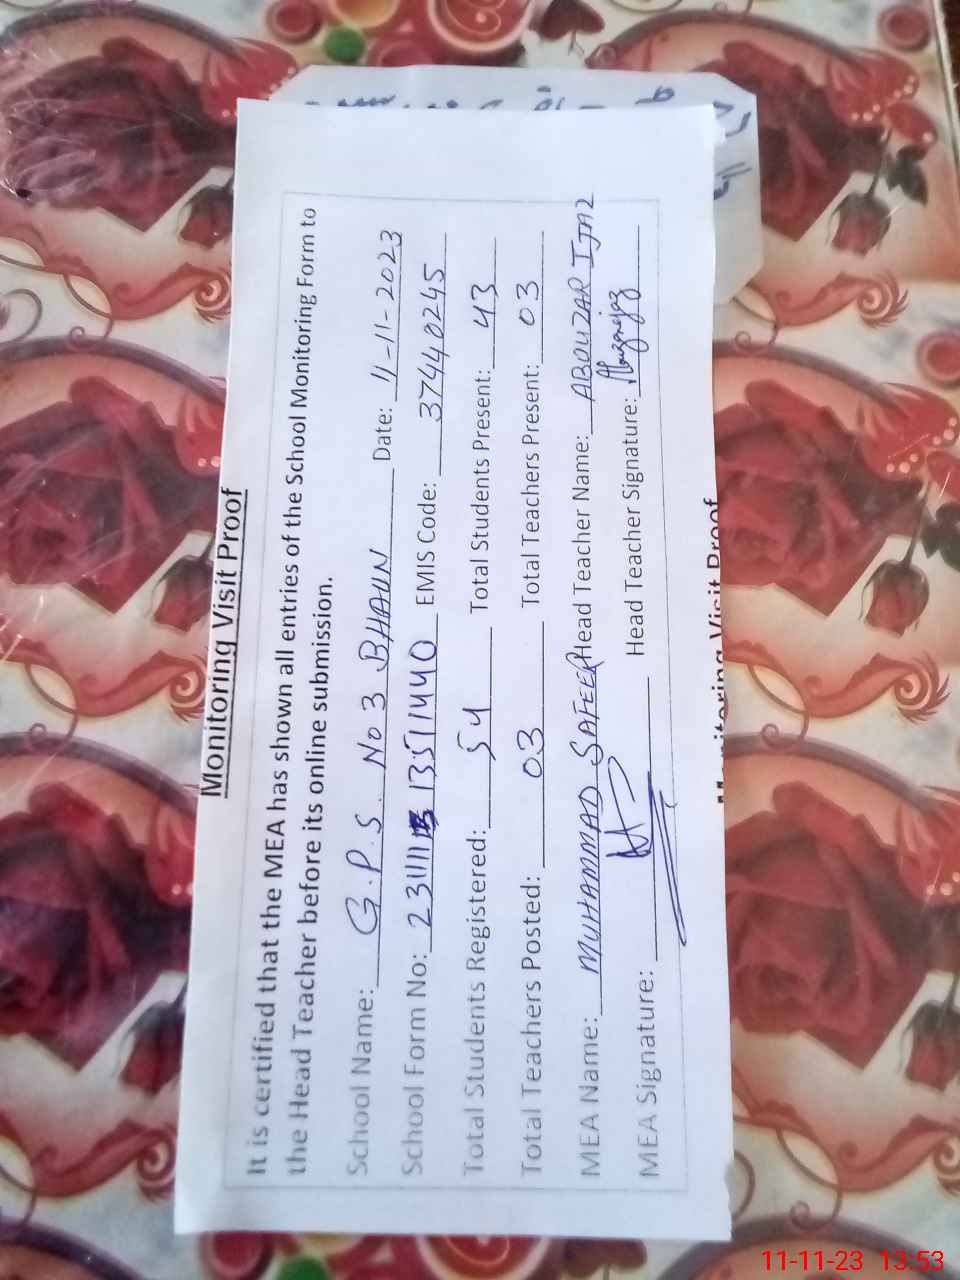 Monitoring Visit Proof
It is certified that the MEA has shown all entries of the School Monitoring Form to
the Head Teacher before its online submission.
School Name: G.P.S. No 3 BHAUN Date: 11-11-2023
School Form No: 231111 1351440 EMIS Code: 37440245
Total Students Registered: 54 Total Students Present: 43
Total Teachers Posted: 03 Total Teachers Present: 03
MEA Name: MUHAMMAD SAFEER Head Teacher Name: ABOUZAR IJAZ
MEA Signature: Head Teacher Signature: Abuzarijaz
Monitoring Visit Proof
11-11-23 13:53